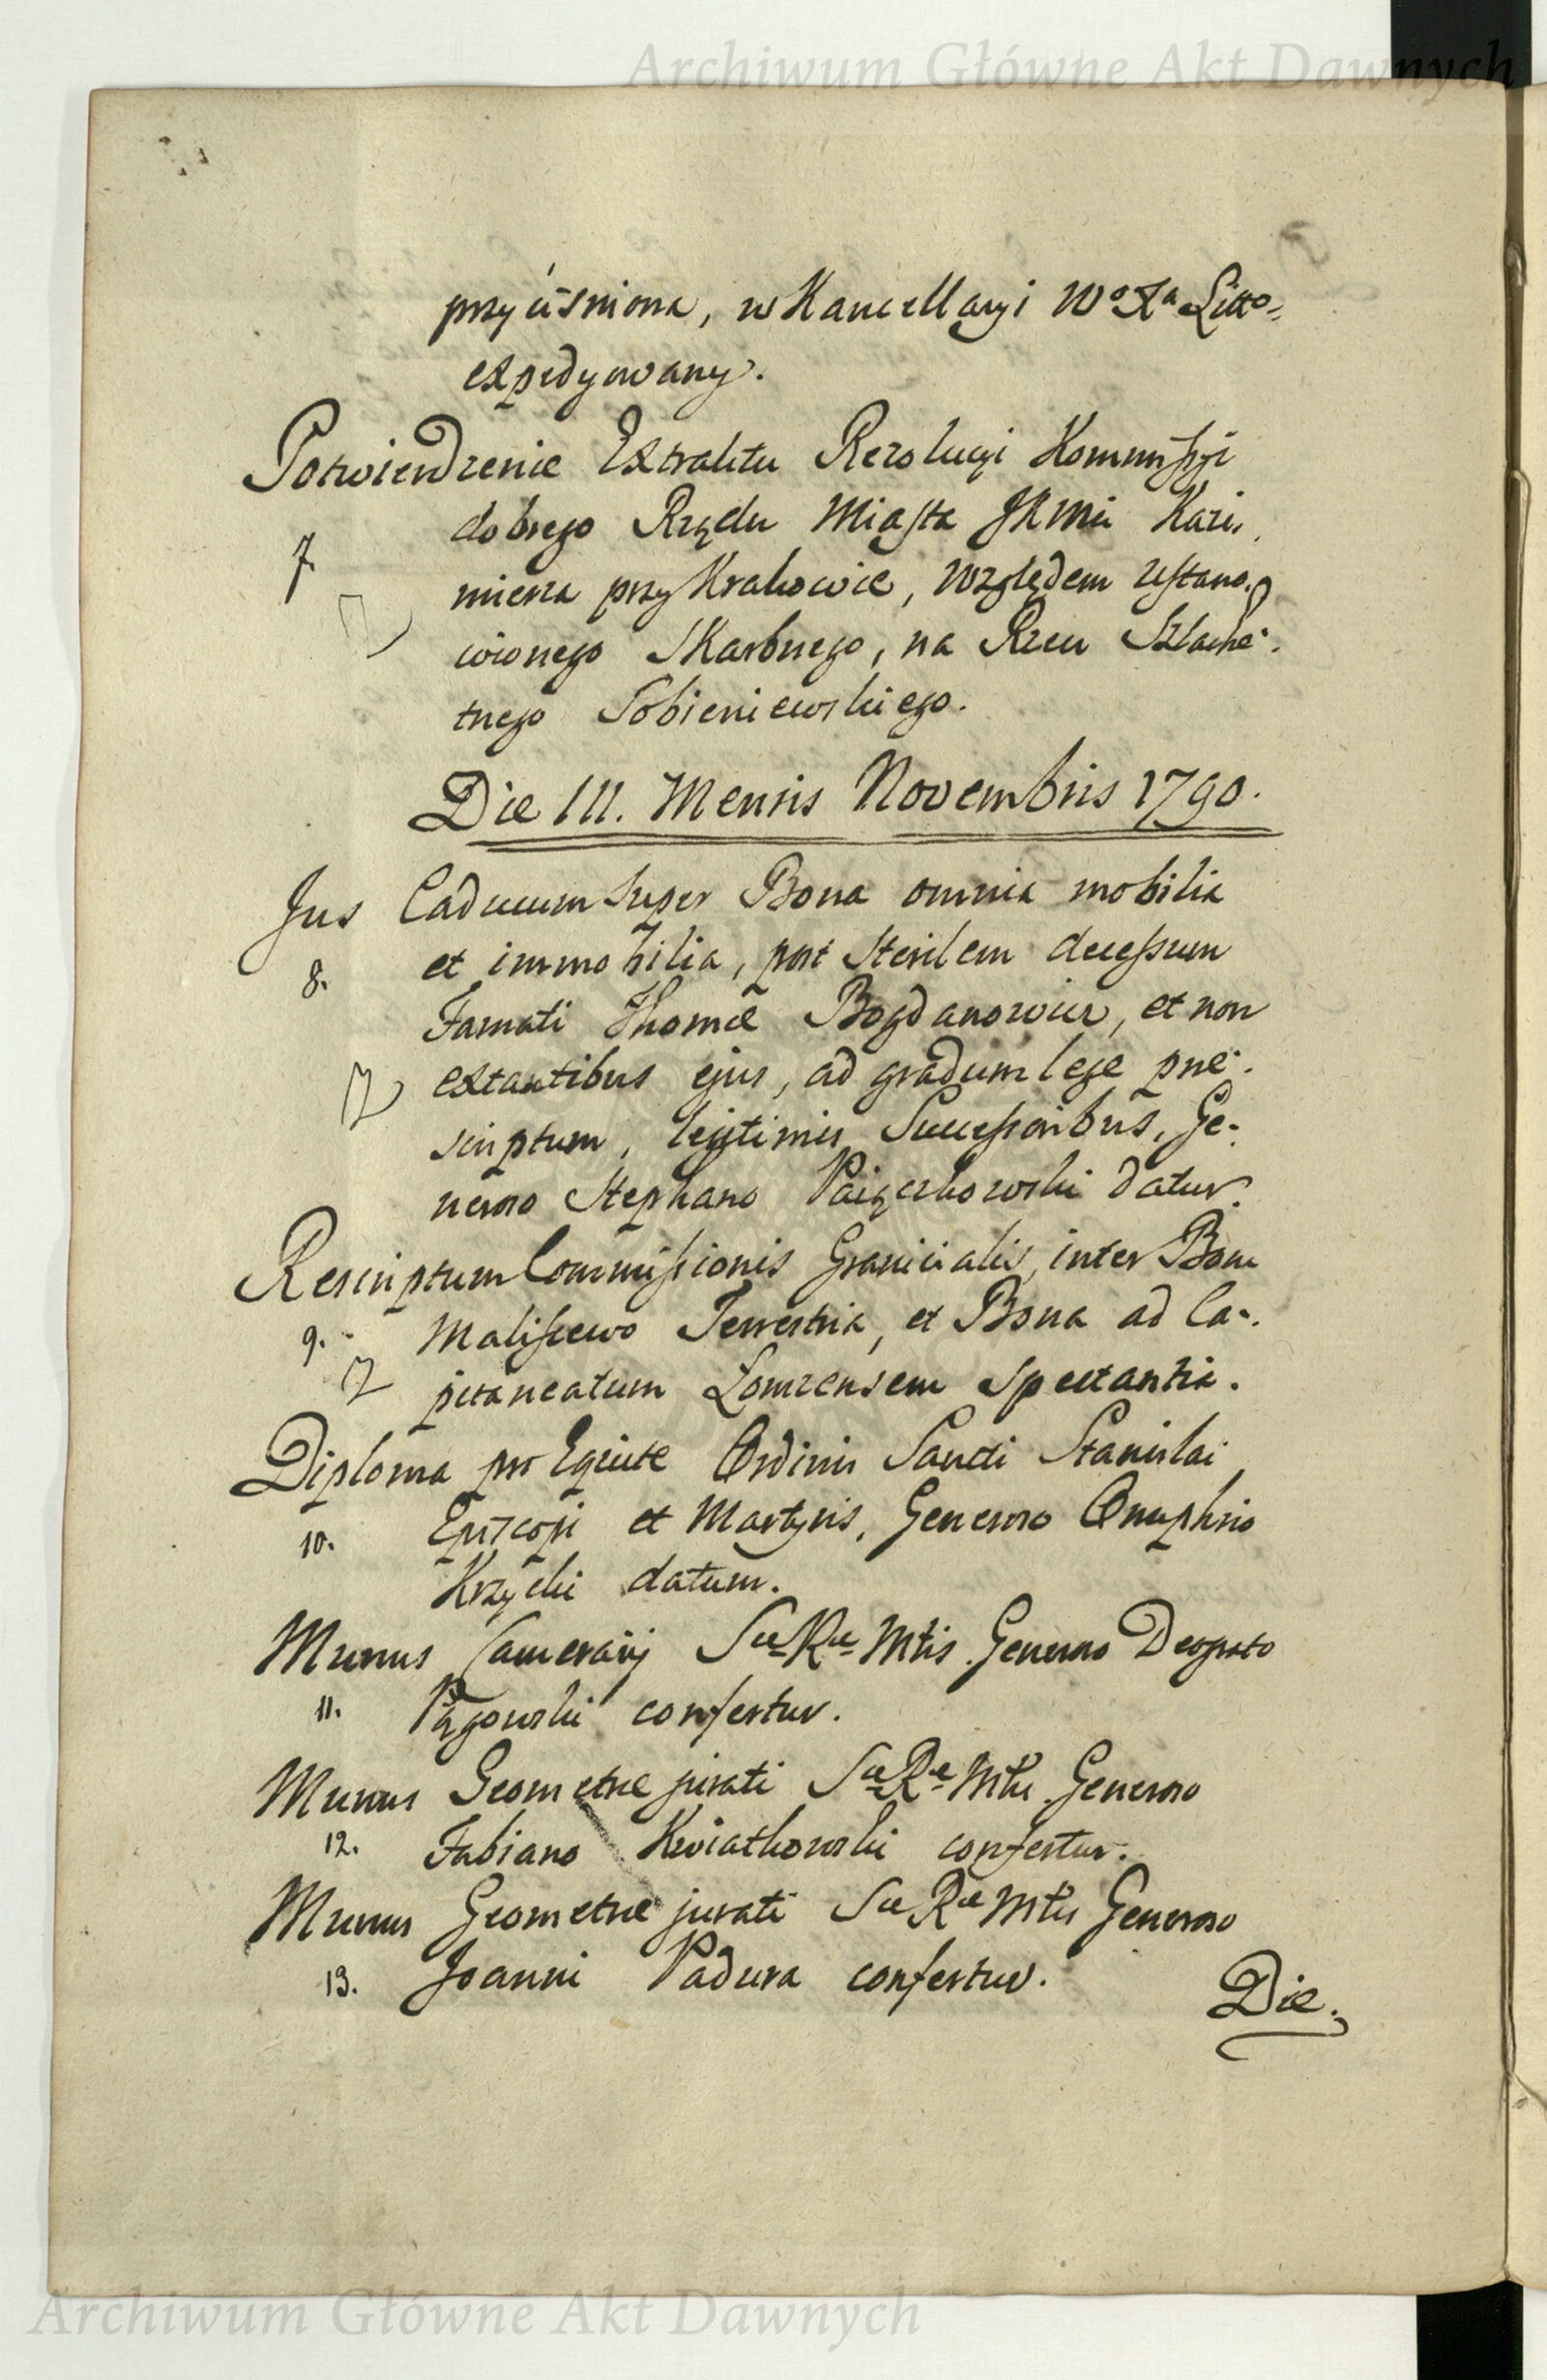 Archiwum Główne Akt Dawnych
przyciśniona, w Kancellaryi Wo Xa Litto-
expedyowany.
Potwierdzenie Extraktu Rezolucyi Kommissyi
dobrego Rządu Miasta JKMci Kazi-
7.
mierza przy Krakowie, względem ustano-
wionego Skarbnego, na Rzecz Szlache-
tnego Sobieniewskiego.
Die III. Mensis Novembris 1790.
Jus Caducum super Bona omnia mobilia
8. et immobilia, post sterilem decessum
Famati Thomæ Bogdanowicz, et non
extantibus ejus, ad gradum lege præ-
scriptum, legitimis Successoribus, Ge-
neroso Stephano datur.
Rescriptum Commissionis Granicialis, inter Bona
9. Maliszewo Terrestria, et Bona ad Ca-
pitaneatum Łomzensem spectantia.
Diploma pro Equite Ordinis Sancti Stanislai
10. Episcopi et Martyris, Generoso Onuphrio
Krzycki datum.
Munus Camerarij Sæ Ræ Mtis Generoso Deograto
11. Pągowski confertur.
Munus Geometræ jurati Sæ Ræ Mtis Generoso
12. Fabiano Kwiatkowski confertur.
Munus Geometræ jurati Sæ Ræ Mtis Generoso
13. Joanni Padura confertur.
Die.
Archiwum Główne Akt Dawnych